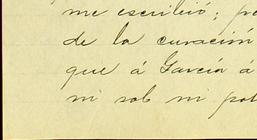 me escribió; p
de la curación
que á García á
ni sol ni pat